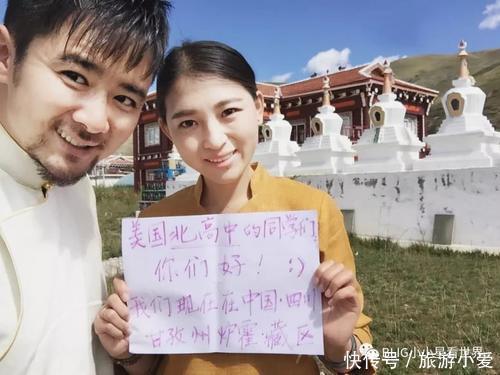 美国北高中的同学们
你们好！:)
我们现在在中国·四川
甘孜州炉霍藏区
快传号 / 旅游小爱